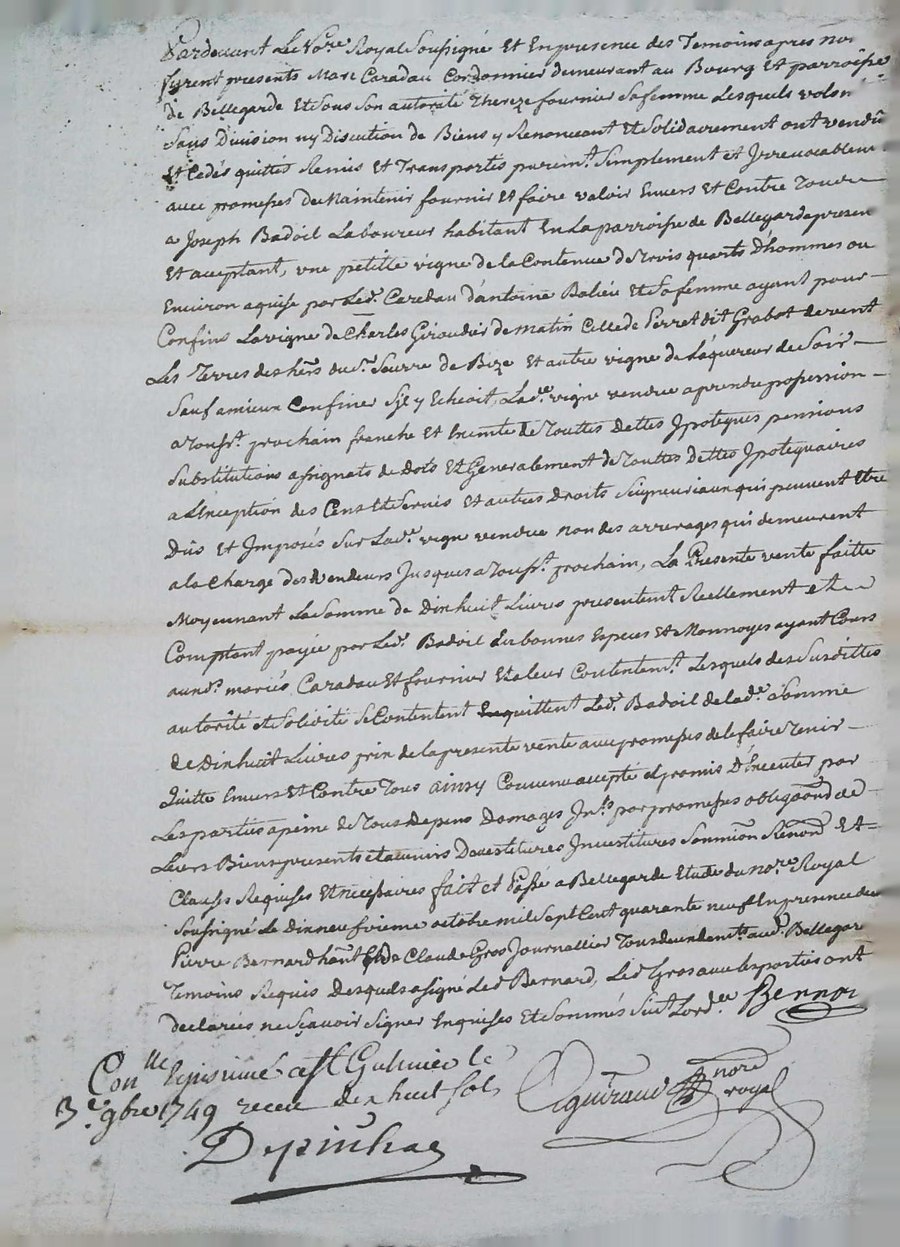 Pardevant Le No.re Royal Soussigné Et En presence des Temoins apres nom
furent presents Marc Caradau Cordonnier demeurant au Bourg Et parroisse
de Bellegarde Et Sous Son autorité Thereze fournier Sa femme Lesquels volon
Sans Division ny Discution de Biens y Renonceant Et Solidairement ont vendu
Et Cedés quittés Remis Et Transportés purem.t Simplement et Irrevocablem
avec promesses de Maintenir fournir Et faire valoir Envers Et Contre Tous
a Joseph Badoil Laboureur habitant En La parroisse de Bellegarde presen
Et aceptant, une petitte vigne de la Contenue de Trois quarts D'hommes ou
Environ aquise par Led. Caradau d'antoine Et Sa femme ayant pour
Confins La vigne de Charles Giroudier de matin Celle de Perret dit Grabot de vent
Les Terres des hers du S.r Seurre de Boze Et autre vigne de L'aquereur de Soir
Sauf a mieux Confiner S'il y Echeoit, Lad.e vigne vendue a prendre possession
a Touss.t prochain franche Et Exemte de Touttes dettes Ipoteques pensions
Substitutions assignats de dots Et Generalement de Touttes dettes Ipotequaires
a L'Exception des Cens Et Servis Et autres Droits Seigneuriaux qui peuvent Etre
Dûs Et Imposés Sur Lad.e vigne vendue non des arrerages qui demeurent
a la Charge des Vendeurs Jusques a Touss.t prochain, La Presente vente faitte
Moyennant La Somme de Dixhuit Livres presentem.t Reellement et
Comptant payée par Led. Badoil En bonnes Especes Et Monnoyes ayant Cours
aux d. mariés Caradau Et fournier Et a leur Contentem.t Lesquels des Susdittes
autorité et Solidité Se Contentent quittent Led. Badoil de lad.e Somme
de Dixhuit Livres prix de la presente vente avec promesses de le faire Tenir
Quitte Envers Et Contre Tous ainsy Convenu accepté et promis D'Executer par
Les parties a peine de Tous Depens Domages Int.ts par promesses oblig.aond de
Leurs Biens presents et avenirs Devestitures Investitures Soumi.on Renond Et
Clauses Requises Et necessaires fait et Passé a Bellegarde Etude du no.re Royal
Soussigné Le Dix neufvieme octobre mil Sept Cent quarante neuf En presence de
Pierre Bernard Et de Claude Gros Journallier Tous deux dem.ts aud. Bellegar
Temoins Requis Desquels a signé Led. Bernard, Led. Gros avec les parties ont
declarées ne Sçavoir Signer Enquises Et Sommés Suiv.t Lord.ce Bernar
Con.lle a St Galmier le
3.e 9bre 1749 receu dix huit Sols
nore
royal